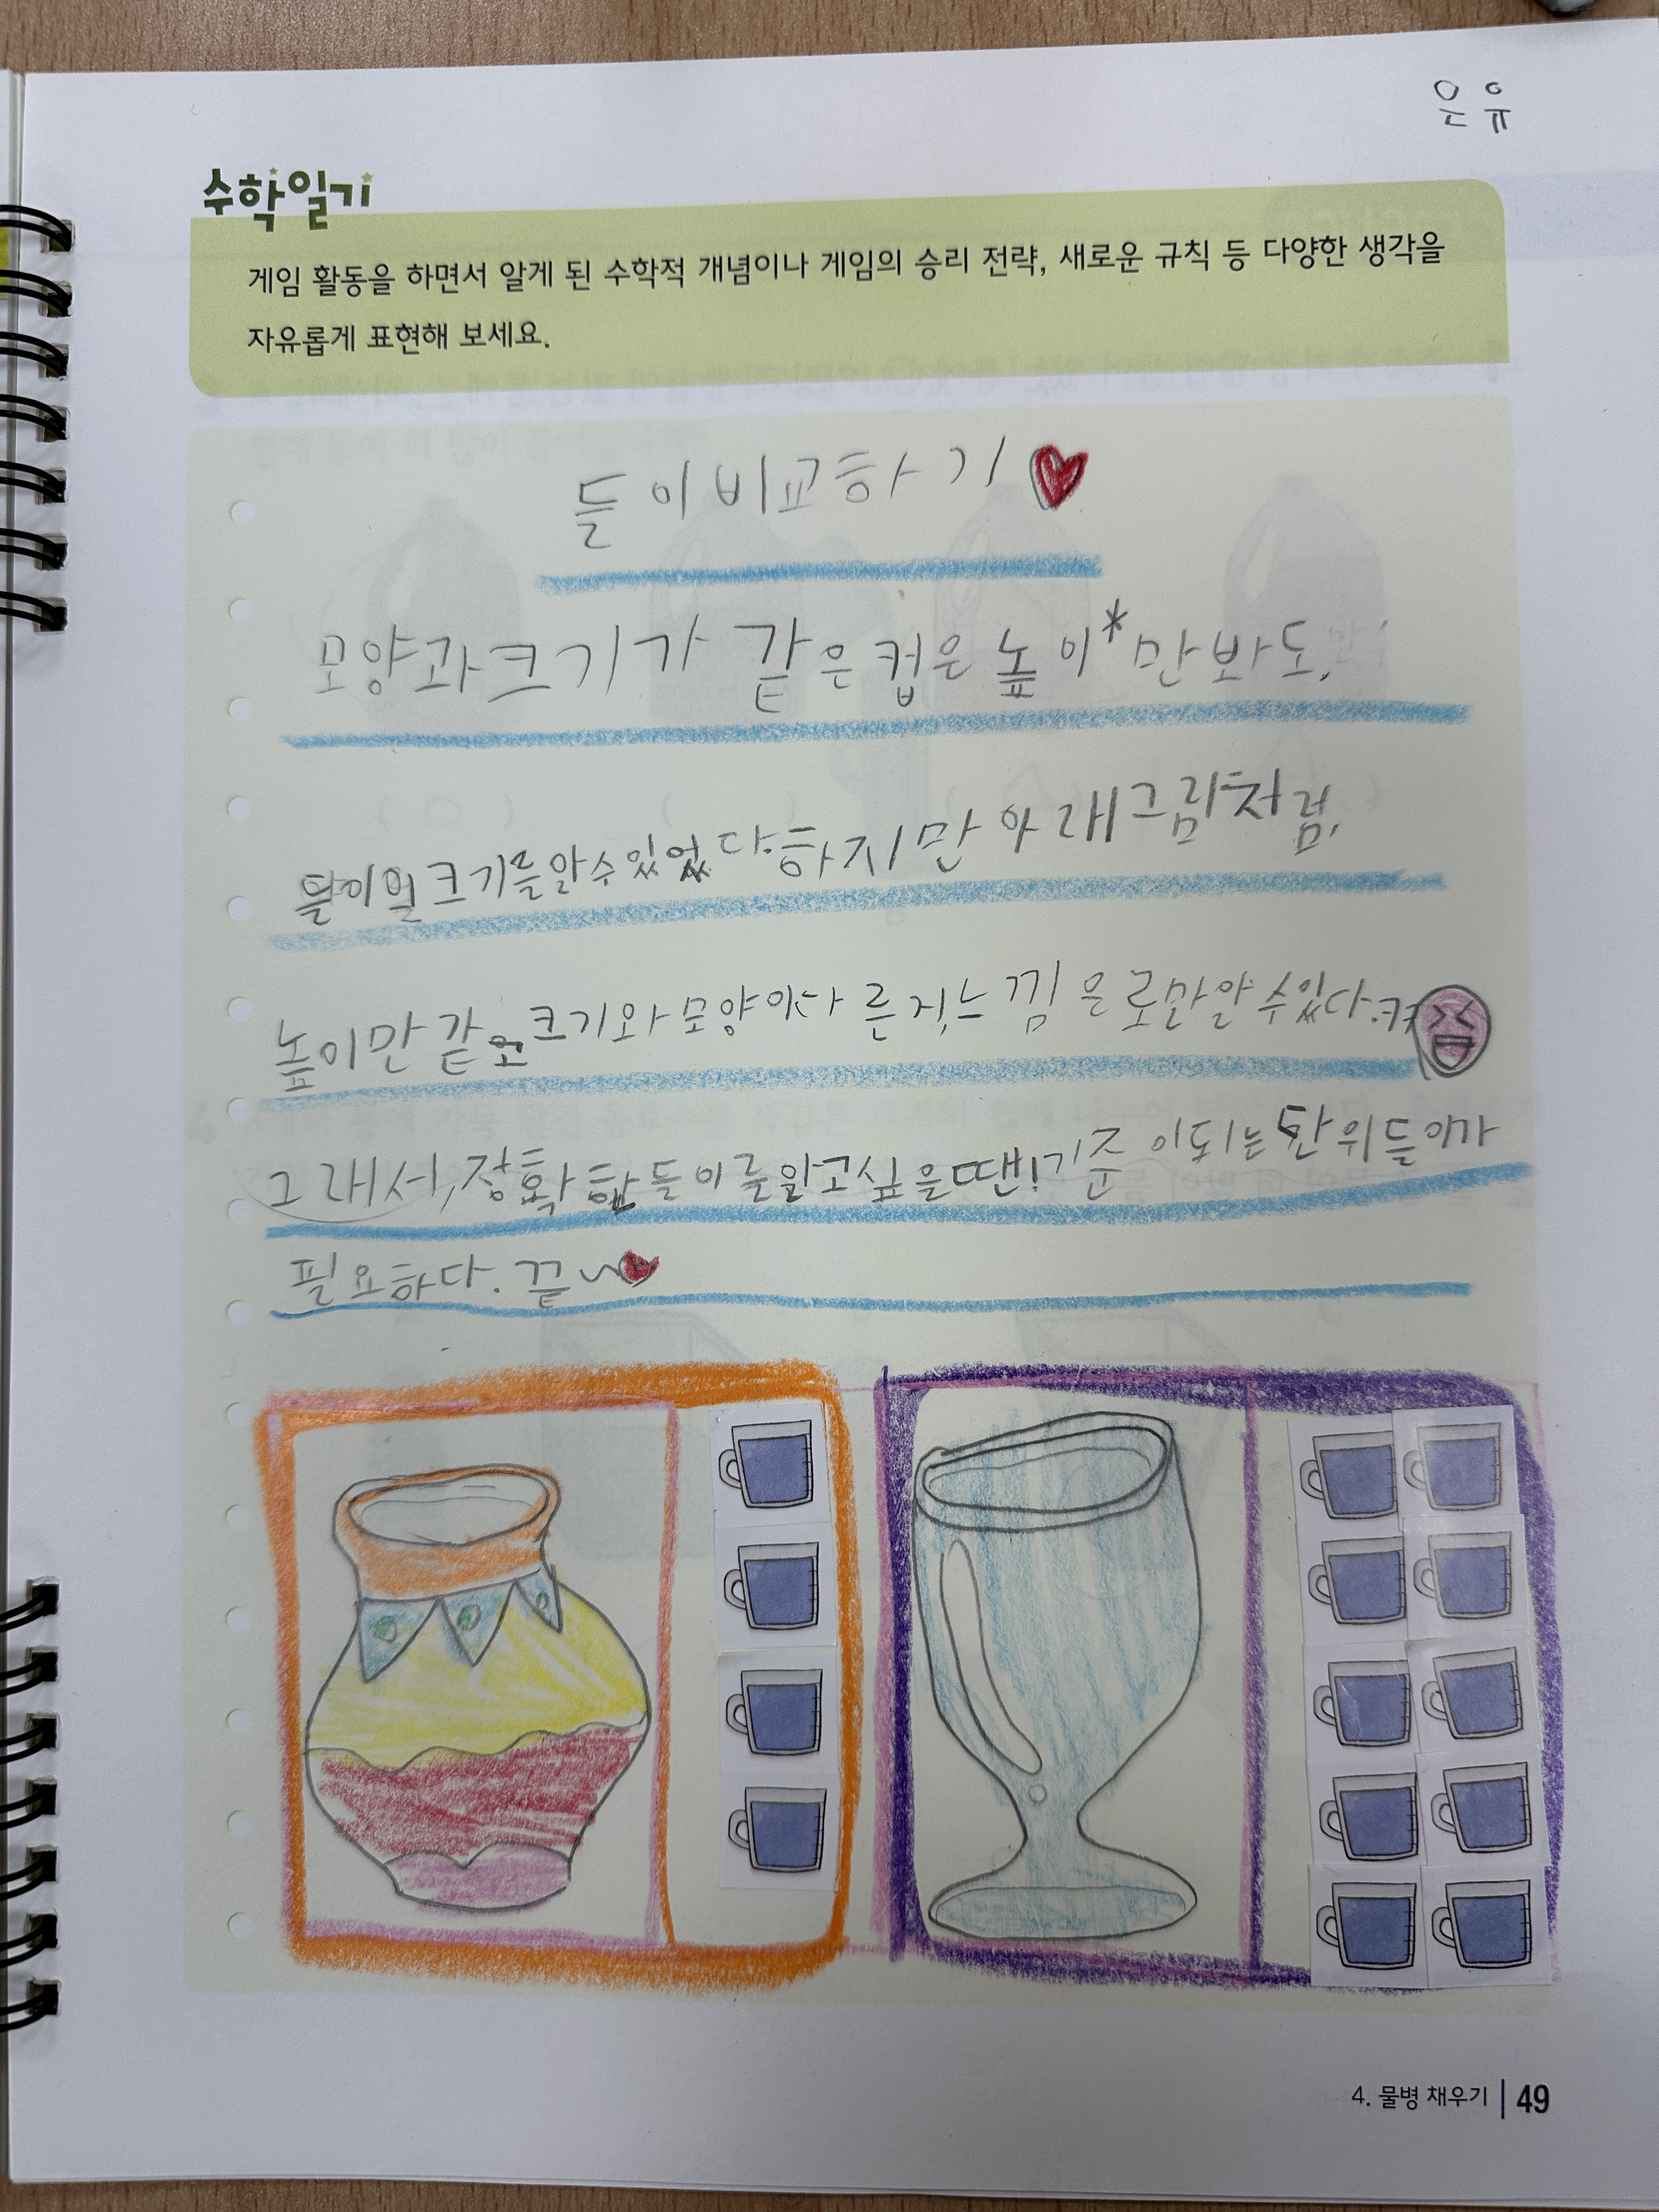 은유
수학일기
게임 활동을 하면서 알게 된 수학적 개념이나 게임의 승리 전략, 새로운 규칙 등 다양한 생각을
자유롭게 표현해 보세요.
들이비교하기
모양과크기가 같은컵은높이*만보아도,
들이의크기를알수있었다.하지만아래그림처럼,
높이만같고크기와모양이다른지,느낌은로만알수있다.
그래서,정확한들이를알고싶을땐!기준이되는단위들이가
필요하다. 끝~
4. 물병 채우기 | 49